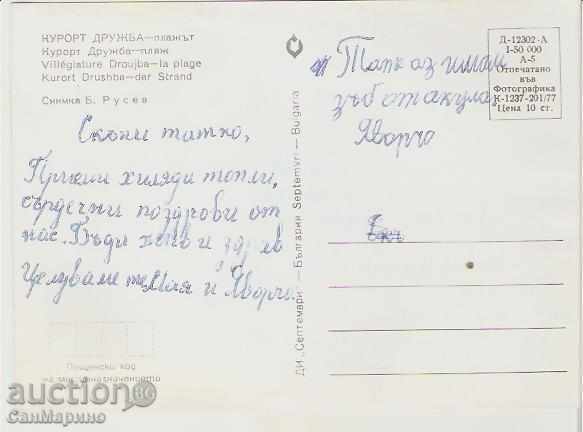 КУРОРТ ДРУЖБА—плажът
Курорт Дружба—пляж
Villégiature Droujba—la plage
Kurort Drushba—der Strand
Снимка Б. Русев
Скъпи татко,
Приеми хиляди топли,
сърдечни поздрови от
нас. Бъди жив и здрав
Целуваме те Мая и Яворчо.
Пощенски код
на местоназначението
ДИ „Септември"—България Septemvri — Bulgaria
Татк аз имам
зъб от акула
Яворчо
Д-12302-А
I-50 000
А-5
Отпечатано
във
Фотографика
К-1237-201/77
Цена 10 ст.
auction BG
СанМарино